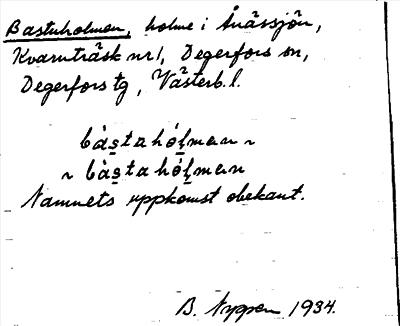 Bastuholmen, holme i Ånässjön,
Kvarnträsk nr 1, Degerfors sn,
Degerfors tg, Västerb. l.
bàstahólman ~
~ bàstahólmen
Namnets uppkomst obekant.
B. Nygren 1934.